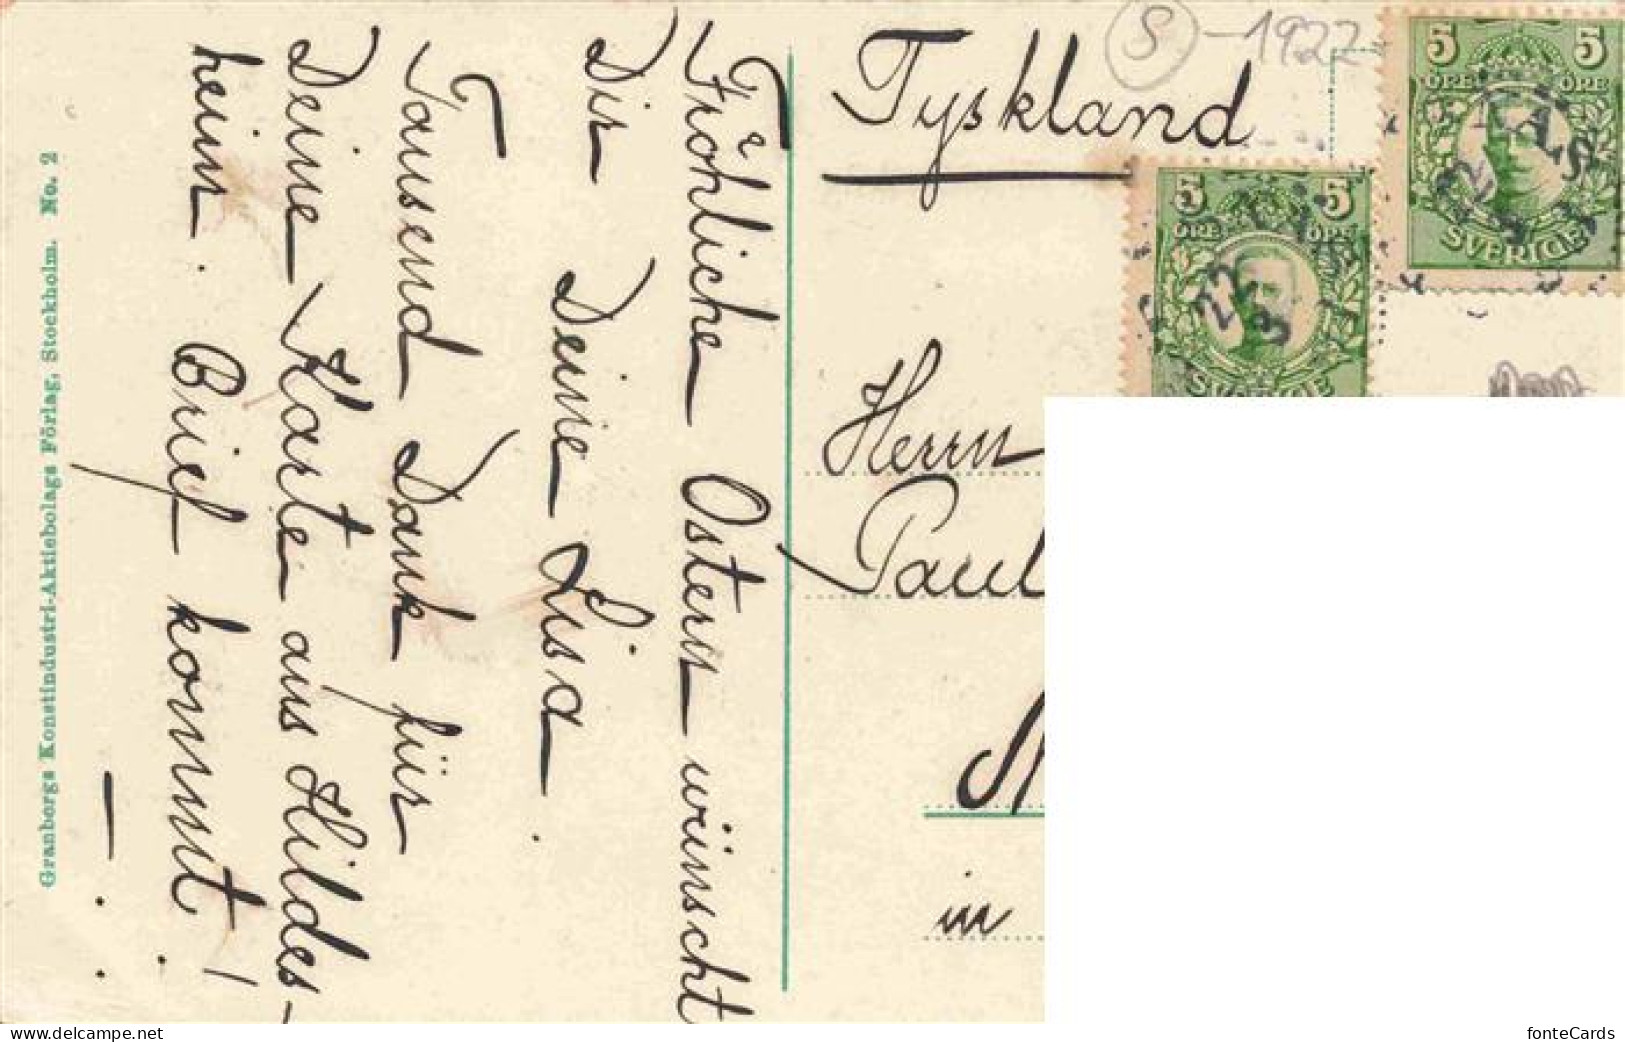 Fröhliche Ostern wünscht
Dir Deine Lisa.
Tausend Dank für
Deine Karte aus Hildes-
heim. Brief kommt!
Granbergs Konstindustri-Aktiebolags Förlag, Stockholm. No. 2
S - 1922
Tyskland
5 5
ÖRE ÖRE
SVERIGE
5 5
ÖRE ÖRE
SVERIGE
22
Herrn
Paul
in
delcampe.net
fonteCards